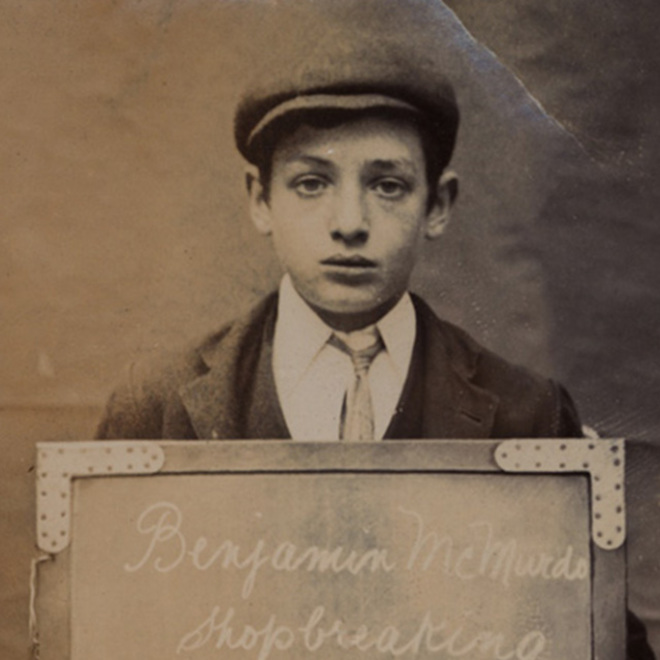 Benjamin McMurdo
Shopbreaking